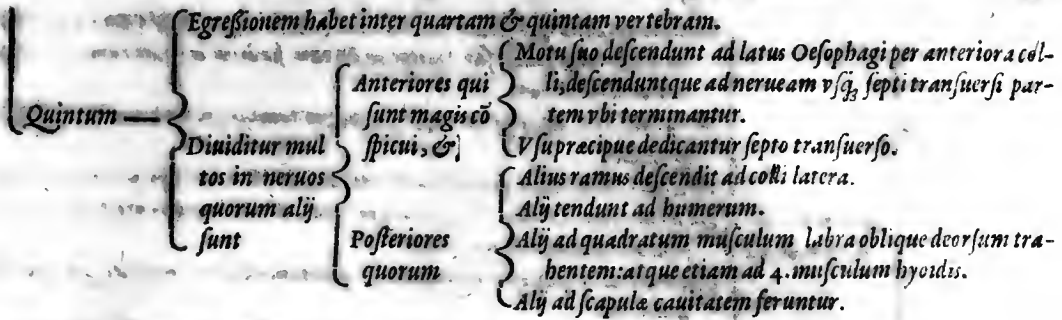 Quintum
Egreßionem habet inter quartam & quintam vertebram.
Diuiditur mul
tos in neruos
quorum alij
sunt
Anteriores qui
sunt magis cō
spicui, &
Motu suo descendunt ad latus Oesophagi per anteriora col-
li, descenduntque ad nerueam vsq; septi transuersi par-
tem vbi terminantur.
Vsu præcipue dedicantur septo transuerso.
Posteriores
quorum
Alius ramus descendit ad colli latera.
Alij tendunt ad humerum.
Alij ad quadratum musculum labra oblique deorsum tra-
hentem: atque etiam ad 4. musculum hyoidis.
Alij ad scapulæ cauitatem feruntur.